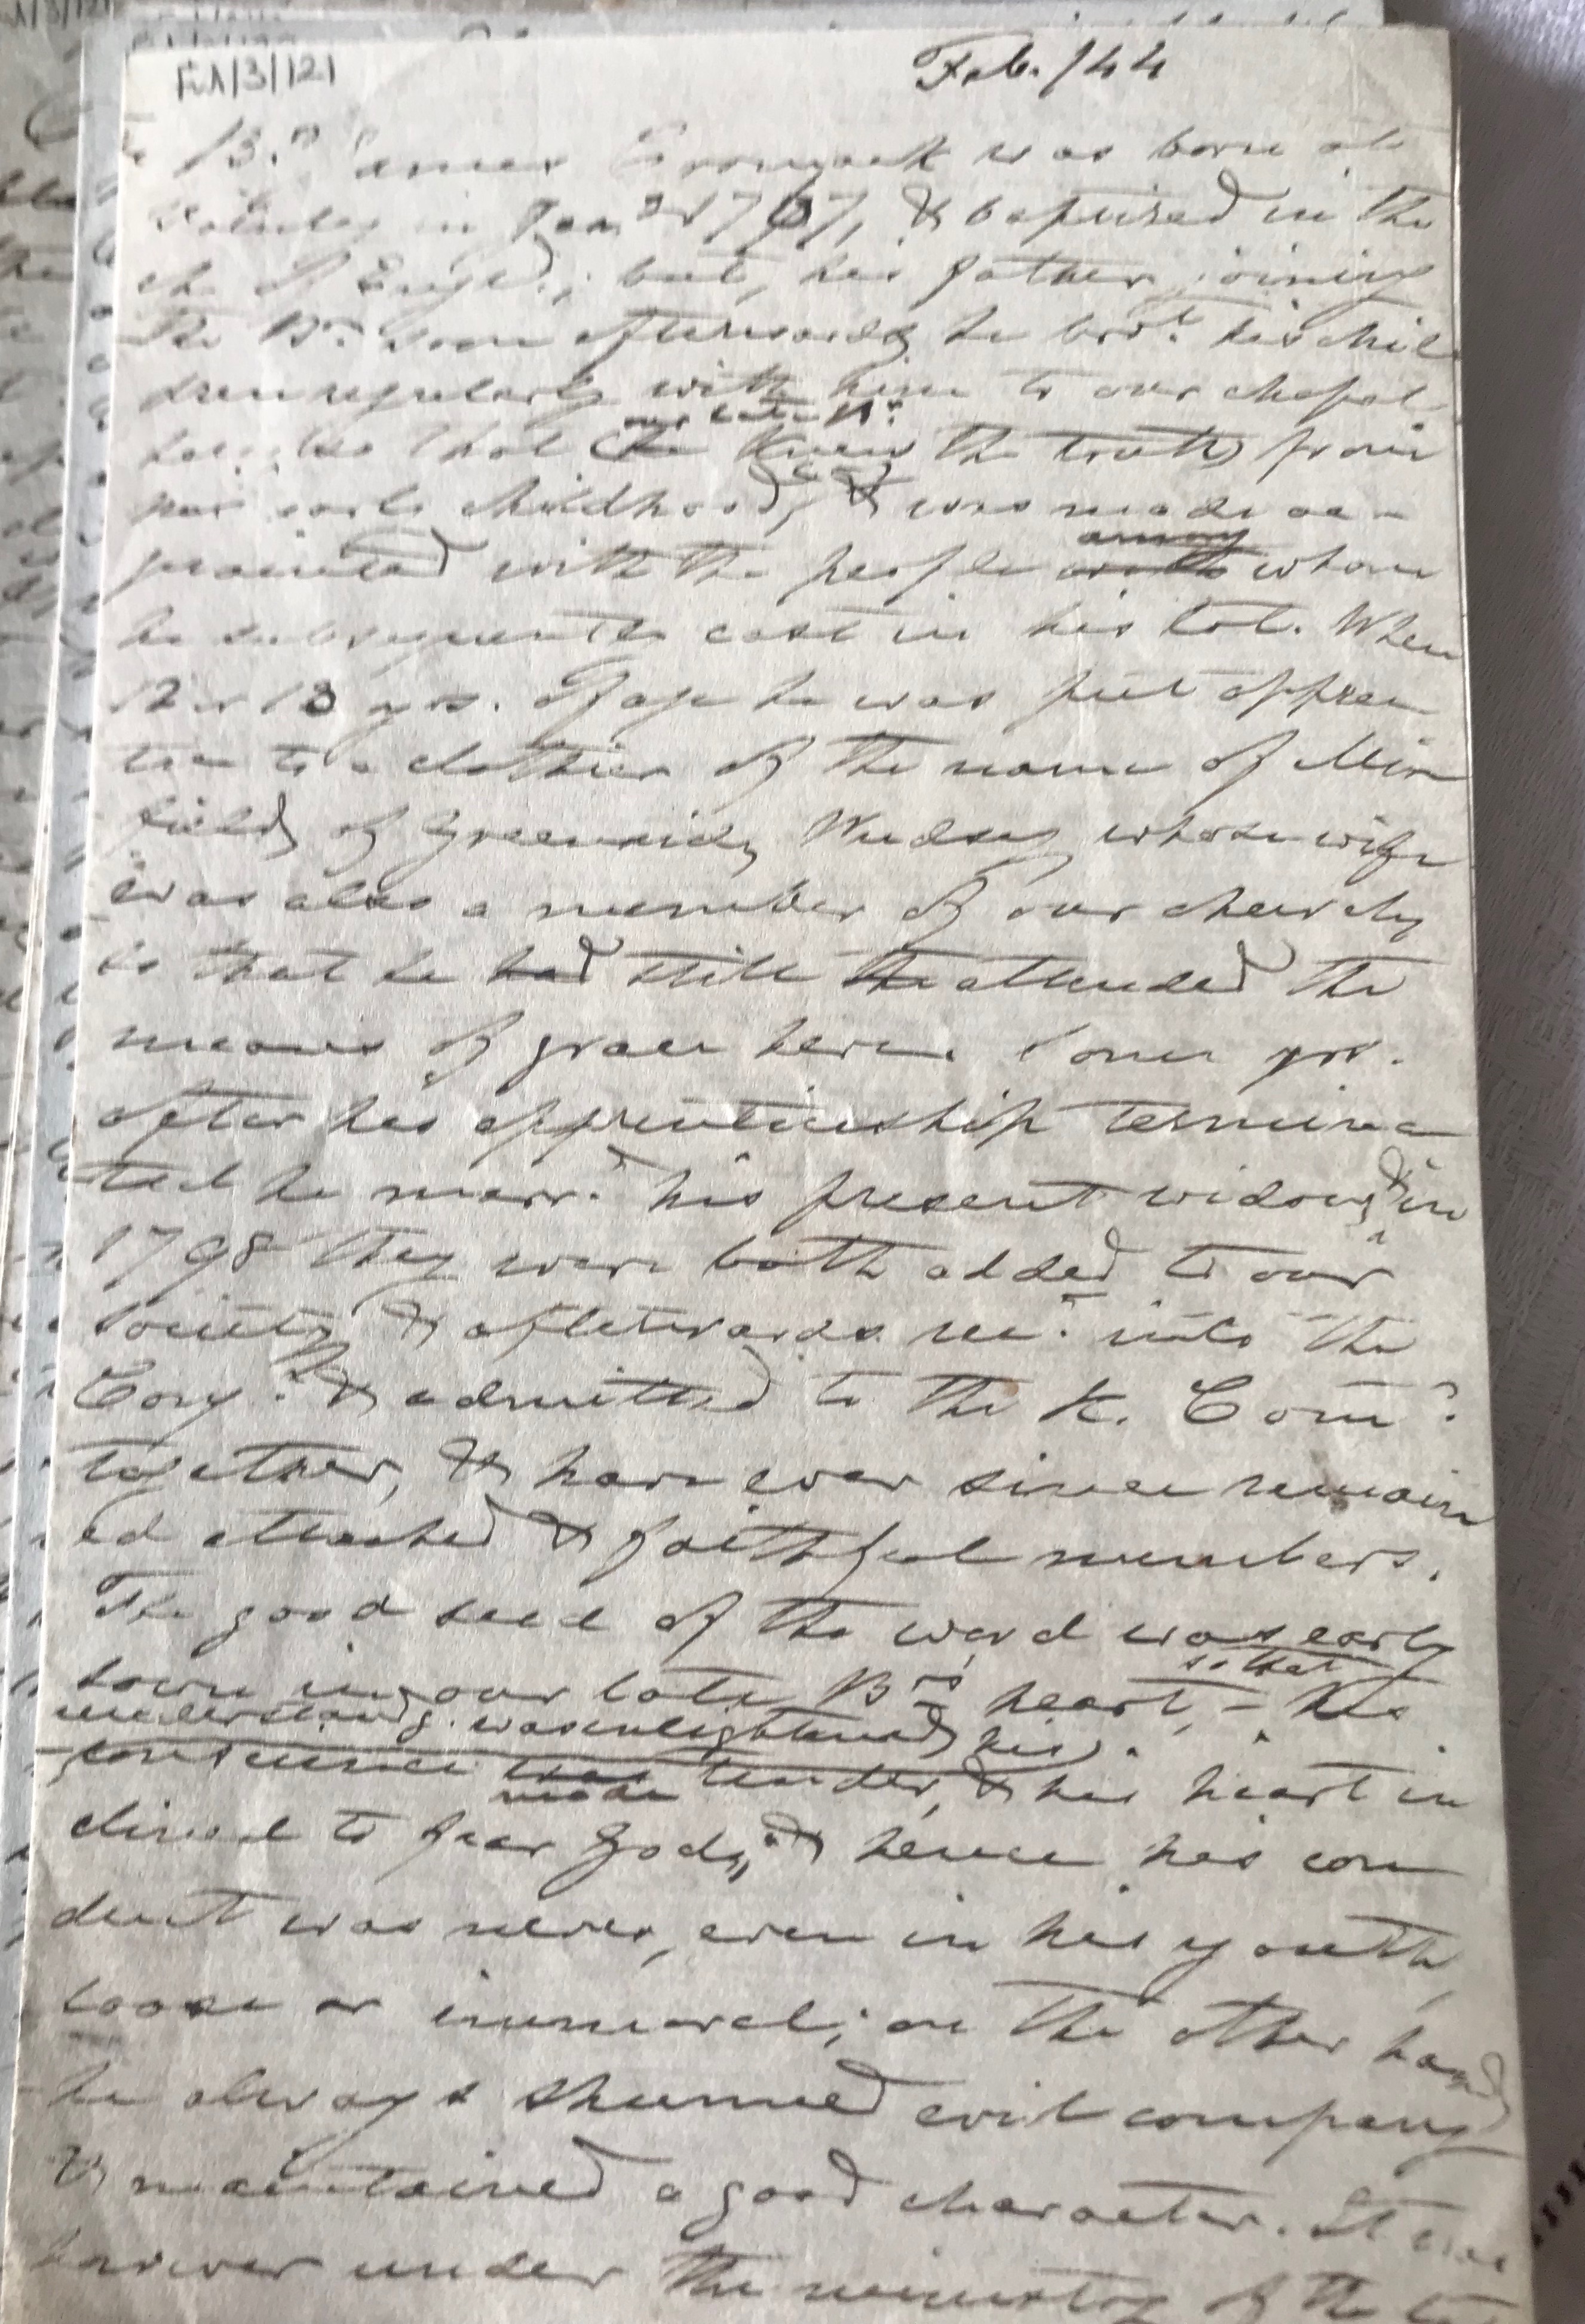 Ful/3/121
Feb. /44
Br. James was born at
in Jany. 1767, & baptised in the
ch. of Engld.; but, his father joining
the Brn. soon afterwards he brot. his chil
dren regularly with him to our chapel
our late Br.
so that he knew the truth from
early childhood, & was made ac-
among
quainted with the people with whom
he subsequently cast in his lot. When
12 or 13 yrs. of age he was put appren
tice to a clothier of the name of Mir
field, of Greenside, Pudsey, whose wife
was also a member of our church,
so that he had still the attended the
means of grace here. Some yrs.
after his apprenticeship termina
ted he marr.d his present widow, & in
1798 they were both added to our
society & afterwards rec.d into the
Cong.n & admitted to the H. Comn.
together, & have ever since remain
ed attached & faithful members.
The good seed of the word was early
so that
sown in our late Br's heart, - his
understandg. was enlightened, his
conscience was tender, & his heart in
made
clined to fear God, & hence his con
duct was never, even in his youth,
loose or immoral; on the other hand
he always shunned evil company
& maintained a good character. It was
however under the ministry of the